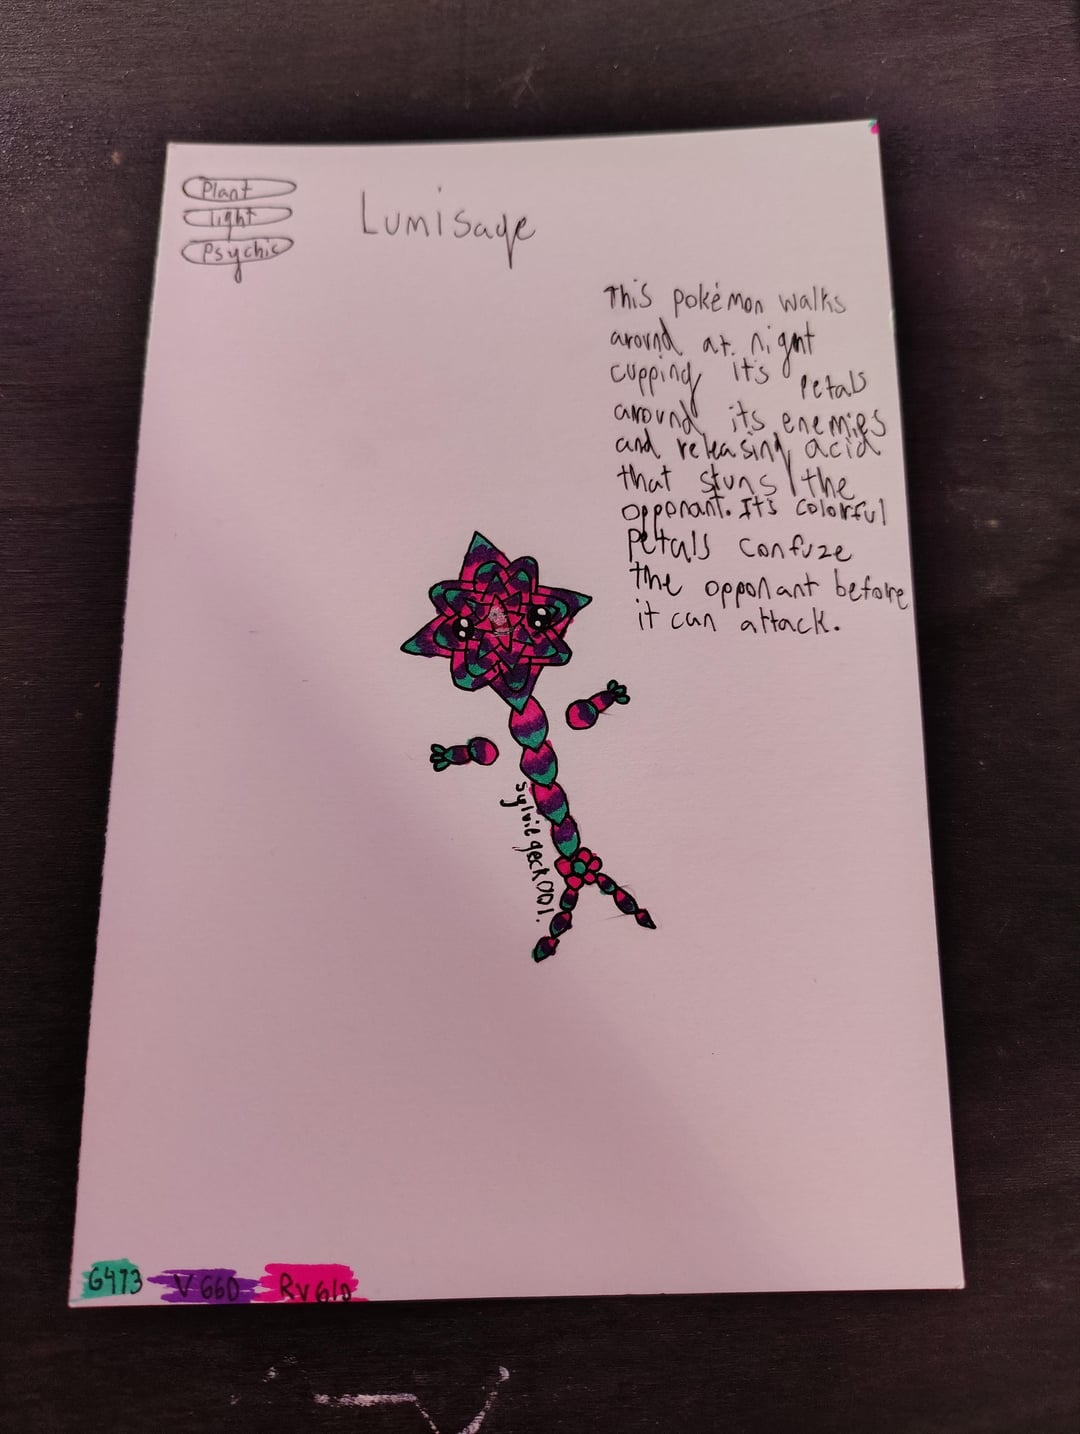 Plant
light
Psychic
Lumisage
This pokémon walks
around at night
cupping it's petals
around its enemies
and releasing acid
that stuns the
opponant. It's colorful
petals confuze
the opponant before
it can attack.
sylviegeck001.
G473 V660 RV610